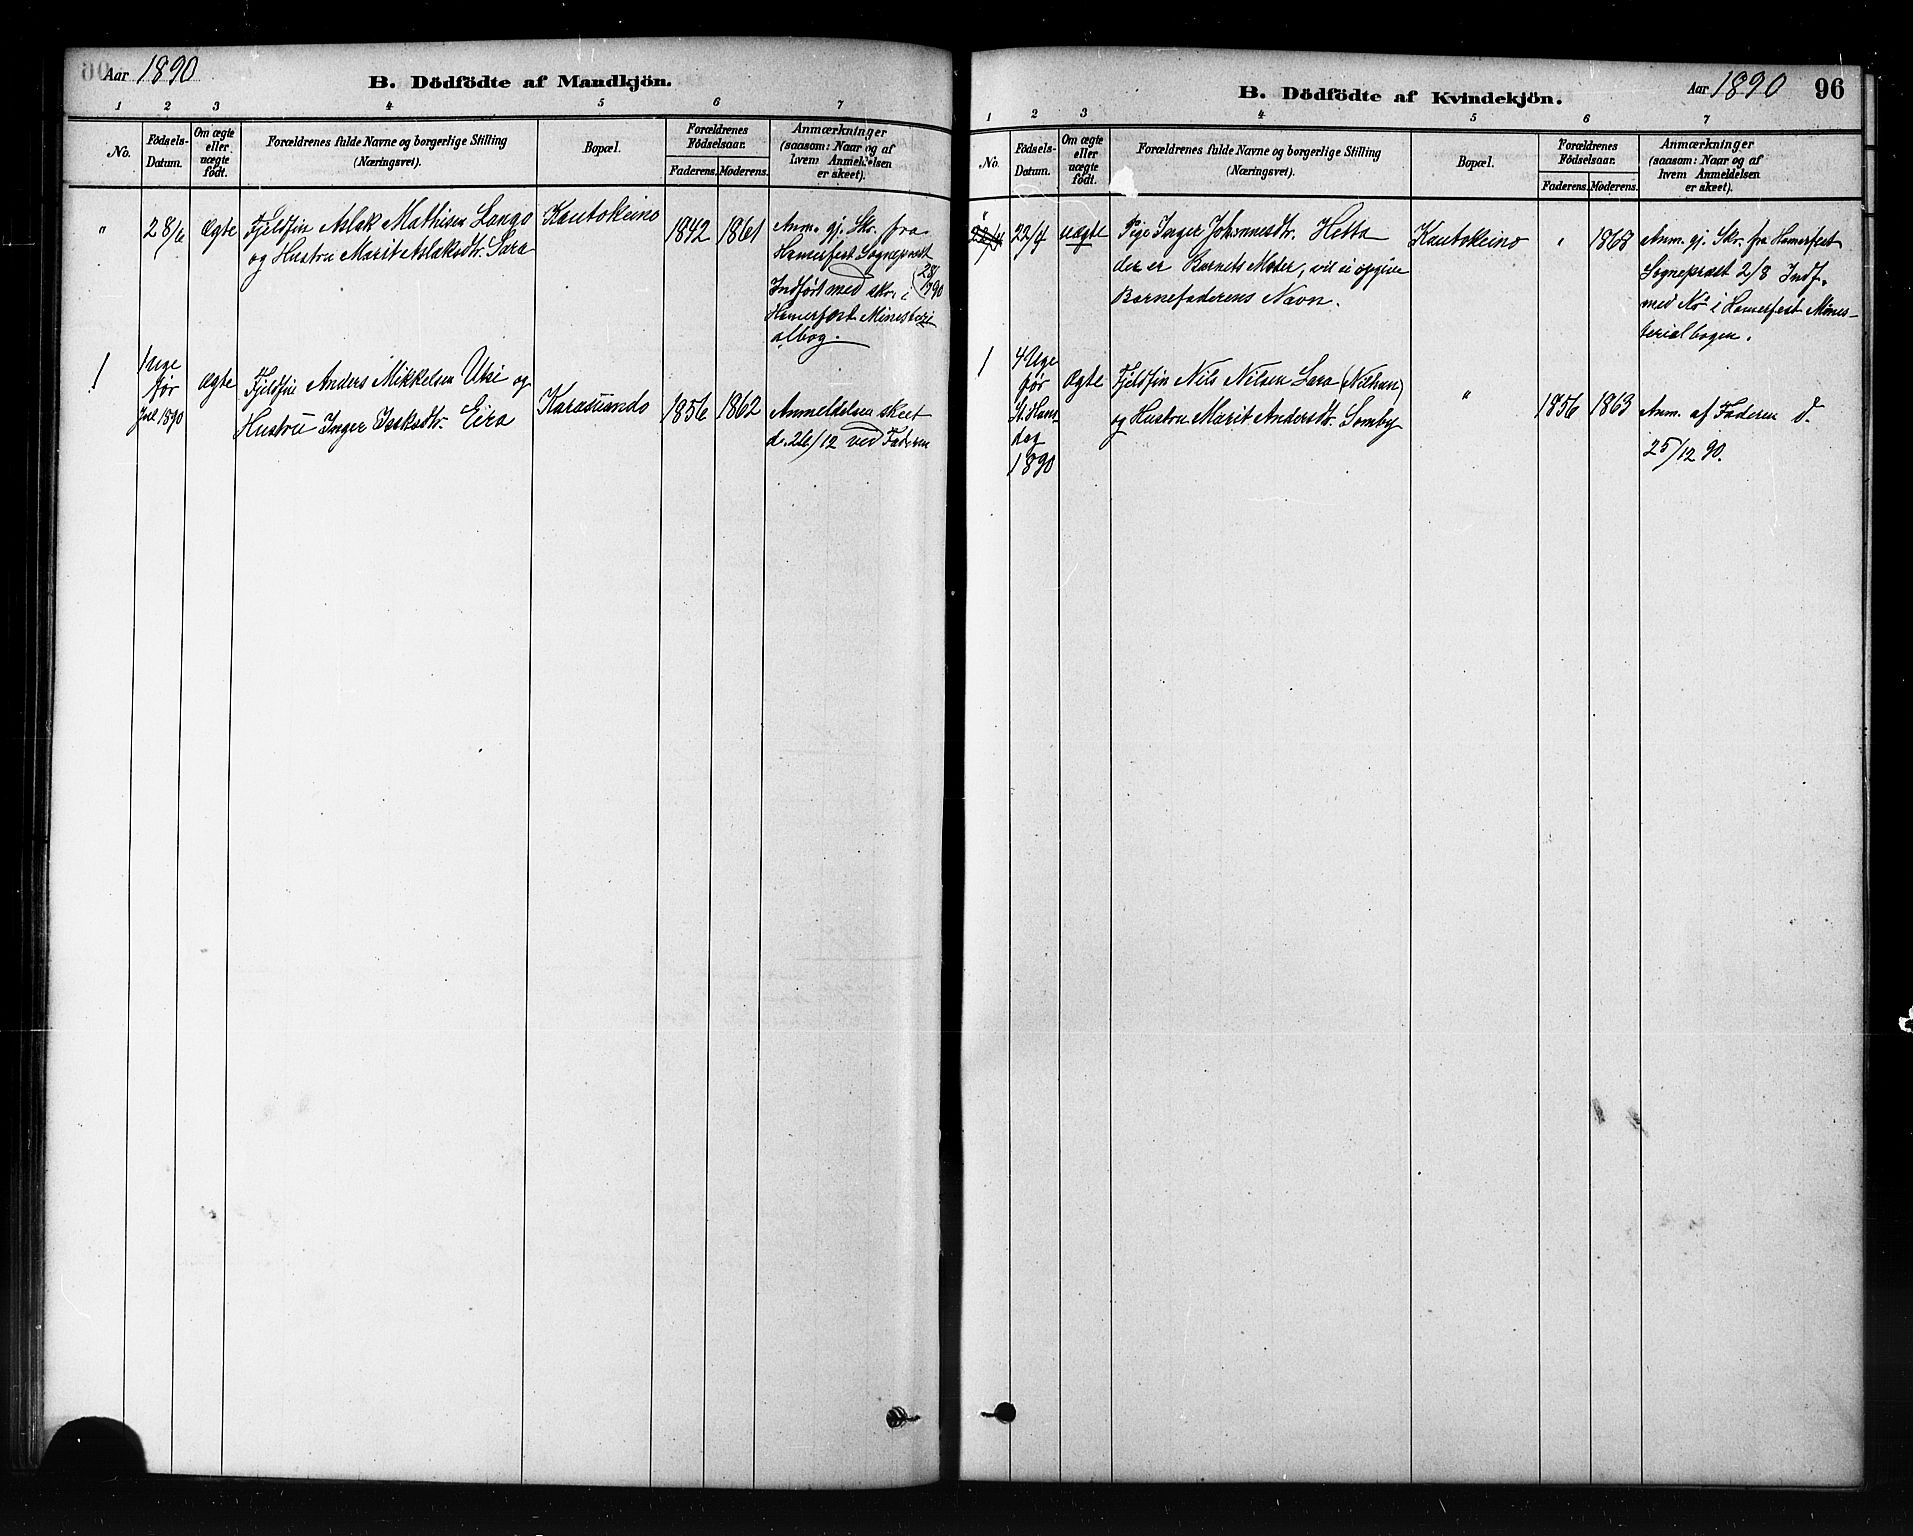 Aar 1890
B. Dödfödte af Mandkjön.
1 2 3 4 5 6 7
No.
Födsels-
Datum.
Om ægte
eller
uægte
födt.
Forældrenes fulde Navne og borgerlige Stilling
(Næringsvei).
Bopæl.
Forældrenes
Födselsaar.
Faderens. Moderens.
Anmærkninger
(saasom: Naar og af
hvem Anmeldelsen
er skeet).
" 28/6 Ægte
Fjeldfin Aslak Mathisen Lango
og Hustru Marit Aslaksdtr. Sara
Kautokeino
1842 1861
Anm. gj. Skr. fra
Hamerfest Sogneprest
28/7 90
Indført med skr. i
Hamerfest Minesteri
albog.
1
1 Uge
før
Jul 1890
Ægte
Fjeldfin Anders Mikkelsen Utsi og
Hustru Inger Isaksdtr. Eira
Karasuando
1856 1862
Anmeldelsen skeet
d. 26/12 ved Faderen
Aar 1890 96
B. Dödfödte af Kvindekjön.
1 2 3 4 5 6 7
No.
Födsels-
Datum.
Om ægte
eller
uægte
födt.
Forældrenes fulde Navne og borgerlige Stilling
(Næringsvei).
Bopæl.
Forældrenes
Födselsaar.
Faderens. Moderens.
Anmærkninger
(saasom: Naar og af
hvem Anmeldelsen
er skeet).
"
22/4 22/4 uægte
Pige Inger Johannesdtr. Hetta
der er Barnets Moder, vil ei opgive
Barnefaderens Navn.
Kautokeino
" 1868
Anm. gj. Skr. fra Hamerfest
Sogneprest 2/8 Indf.
med No i Hamerfest Mines-
terialbogen.
1
4 Uge
før
St. Hans
dag
1890
Ægte
Fjeldfin Nils Nilsen Sara (Nilsan)
og Hustru Marit Andersdtr. Somby
"
1856 1863
Anm. af Faderen d.
25/12 90.